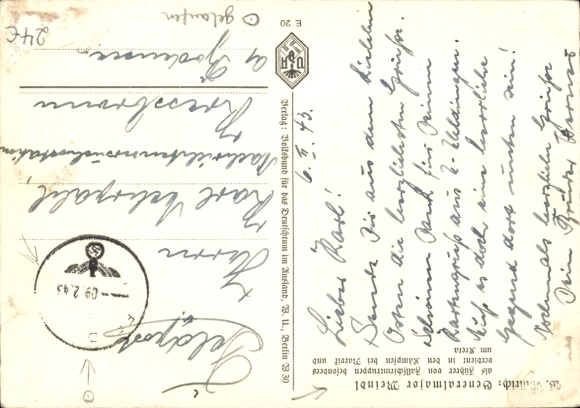 W. Willrich: Generalmajor Meindl
als Führer von Fallschirmtruppen besonders
verdient in den Kämpfen bei Narvik und
um Kreta
6. II. 43.
Lieber Karl!
Sende Dir aus dem
Osten die herzlichsten Grüße.
Dank für Deinen
Kartengruß aus
Muß es doch eine herrliche
Gegend dort unten sein!
Nochmals herzliche Grüße
Dein Bruder Werner
Verlag: Volksbund für das Deutschtum im Ausland, W. U., Berlin W 30
VDA
E 20
Feldpost
09.2.43
Herrn
Karl
Kressbronn
a/ Bodensee
gelaufen
24€